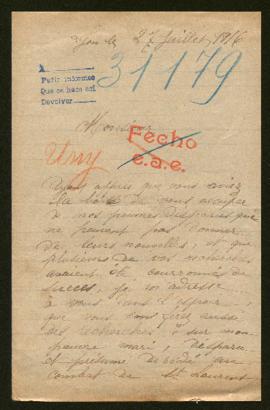 Lyon le 27 Juillet, 1916
A
Pedir informes
Que se hace así
Devolver
31179
Monsieur
Fecho
e.a.e.
Urry
Ayant appris que vous aviez
la bonté de vous occuper
de nos pauvres disparus qui
ne peuvent pas donner
de leurs nouvelles, et que
plusieurs de vos recherches
avaient été couronnées de
succès, je m'adresse
à vous dans l'espoir
que vous ferez aussi
des recherches sur mon
pauvre mari, disparu
et présumé décédé au
combat de St Laurent